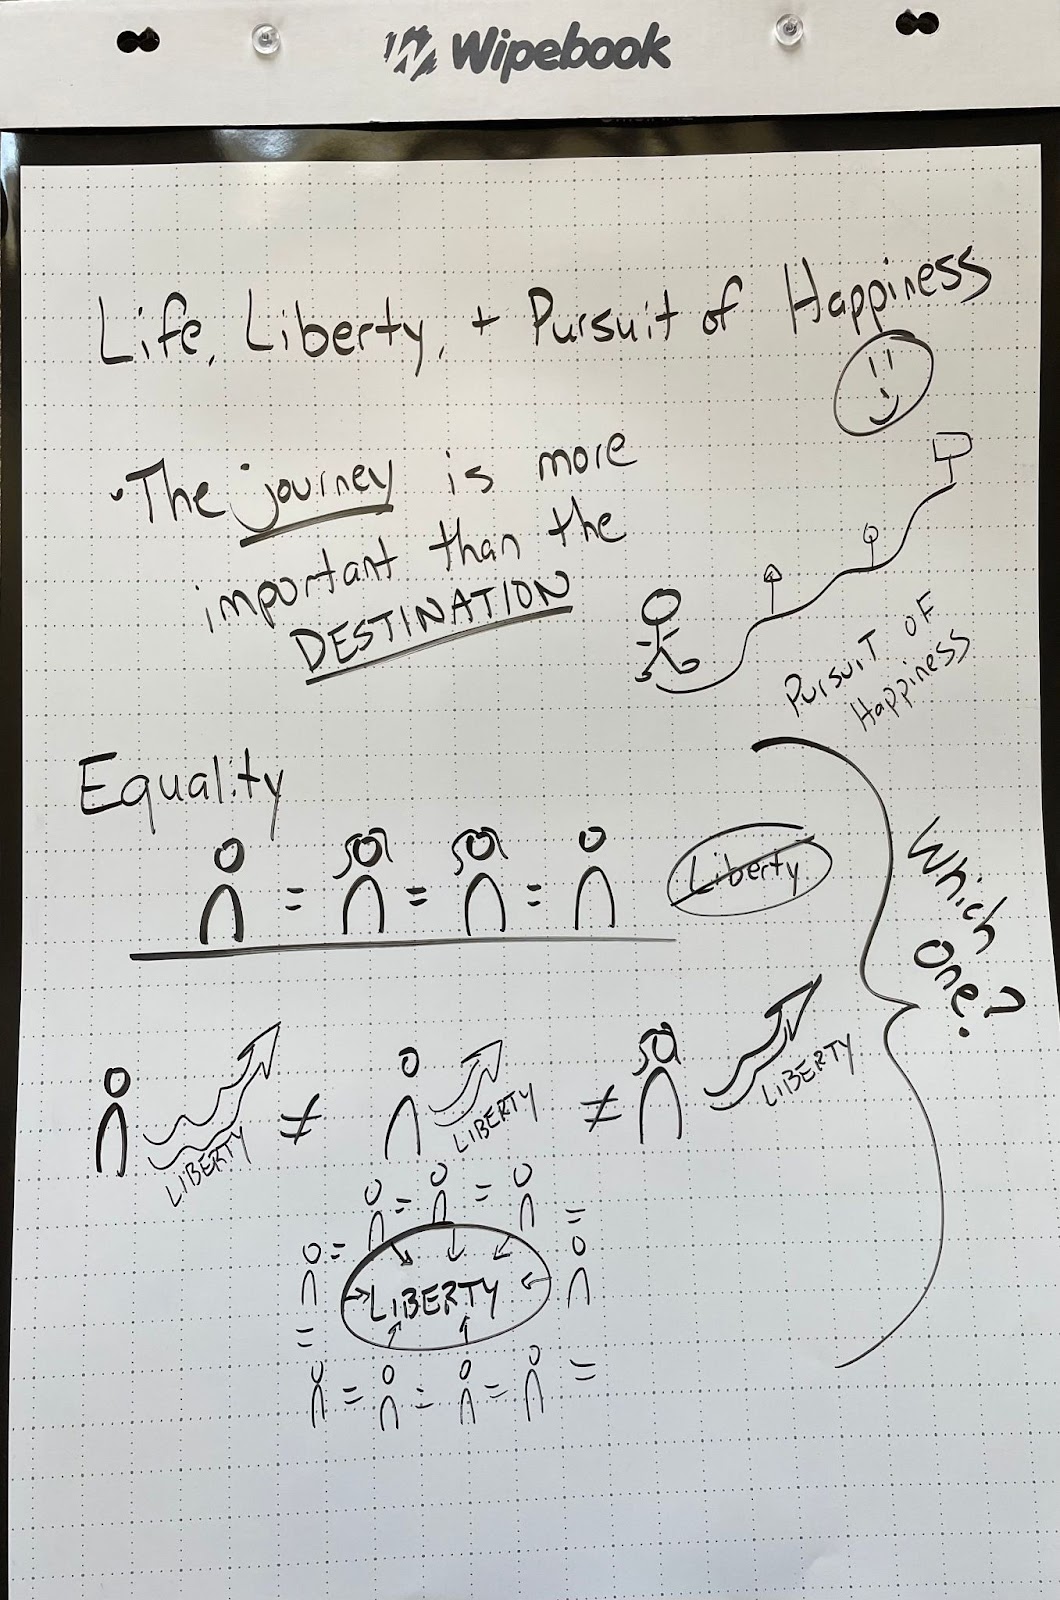 Wipebook
Life, Liberty, + Pursuit of Happiness
• The journey is more
important than the
DESTINATION
PURSUIT OF
Happiness
Equality
= = =
Liberty
Which
One?
LIBERTY ≠ LIBERTY ≠ LIBERTY
= = =
=
LIBERTY
=
= = = =